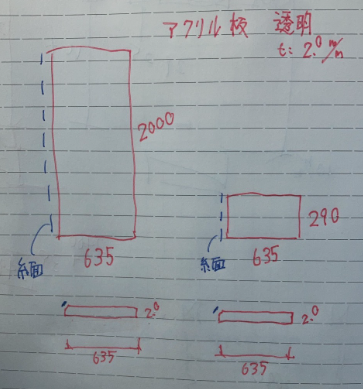 アクリル板 透明
t: 2.0 m/m
2000
635
糸面
290
635
糸面
2.0
635
2.0
635